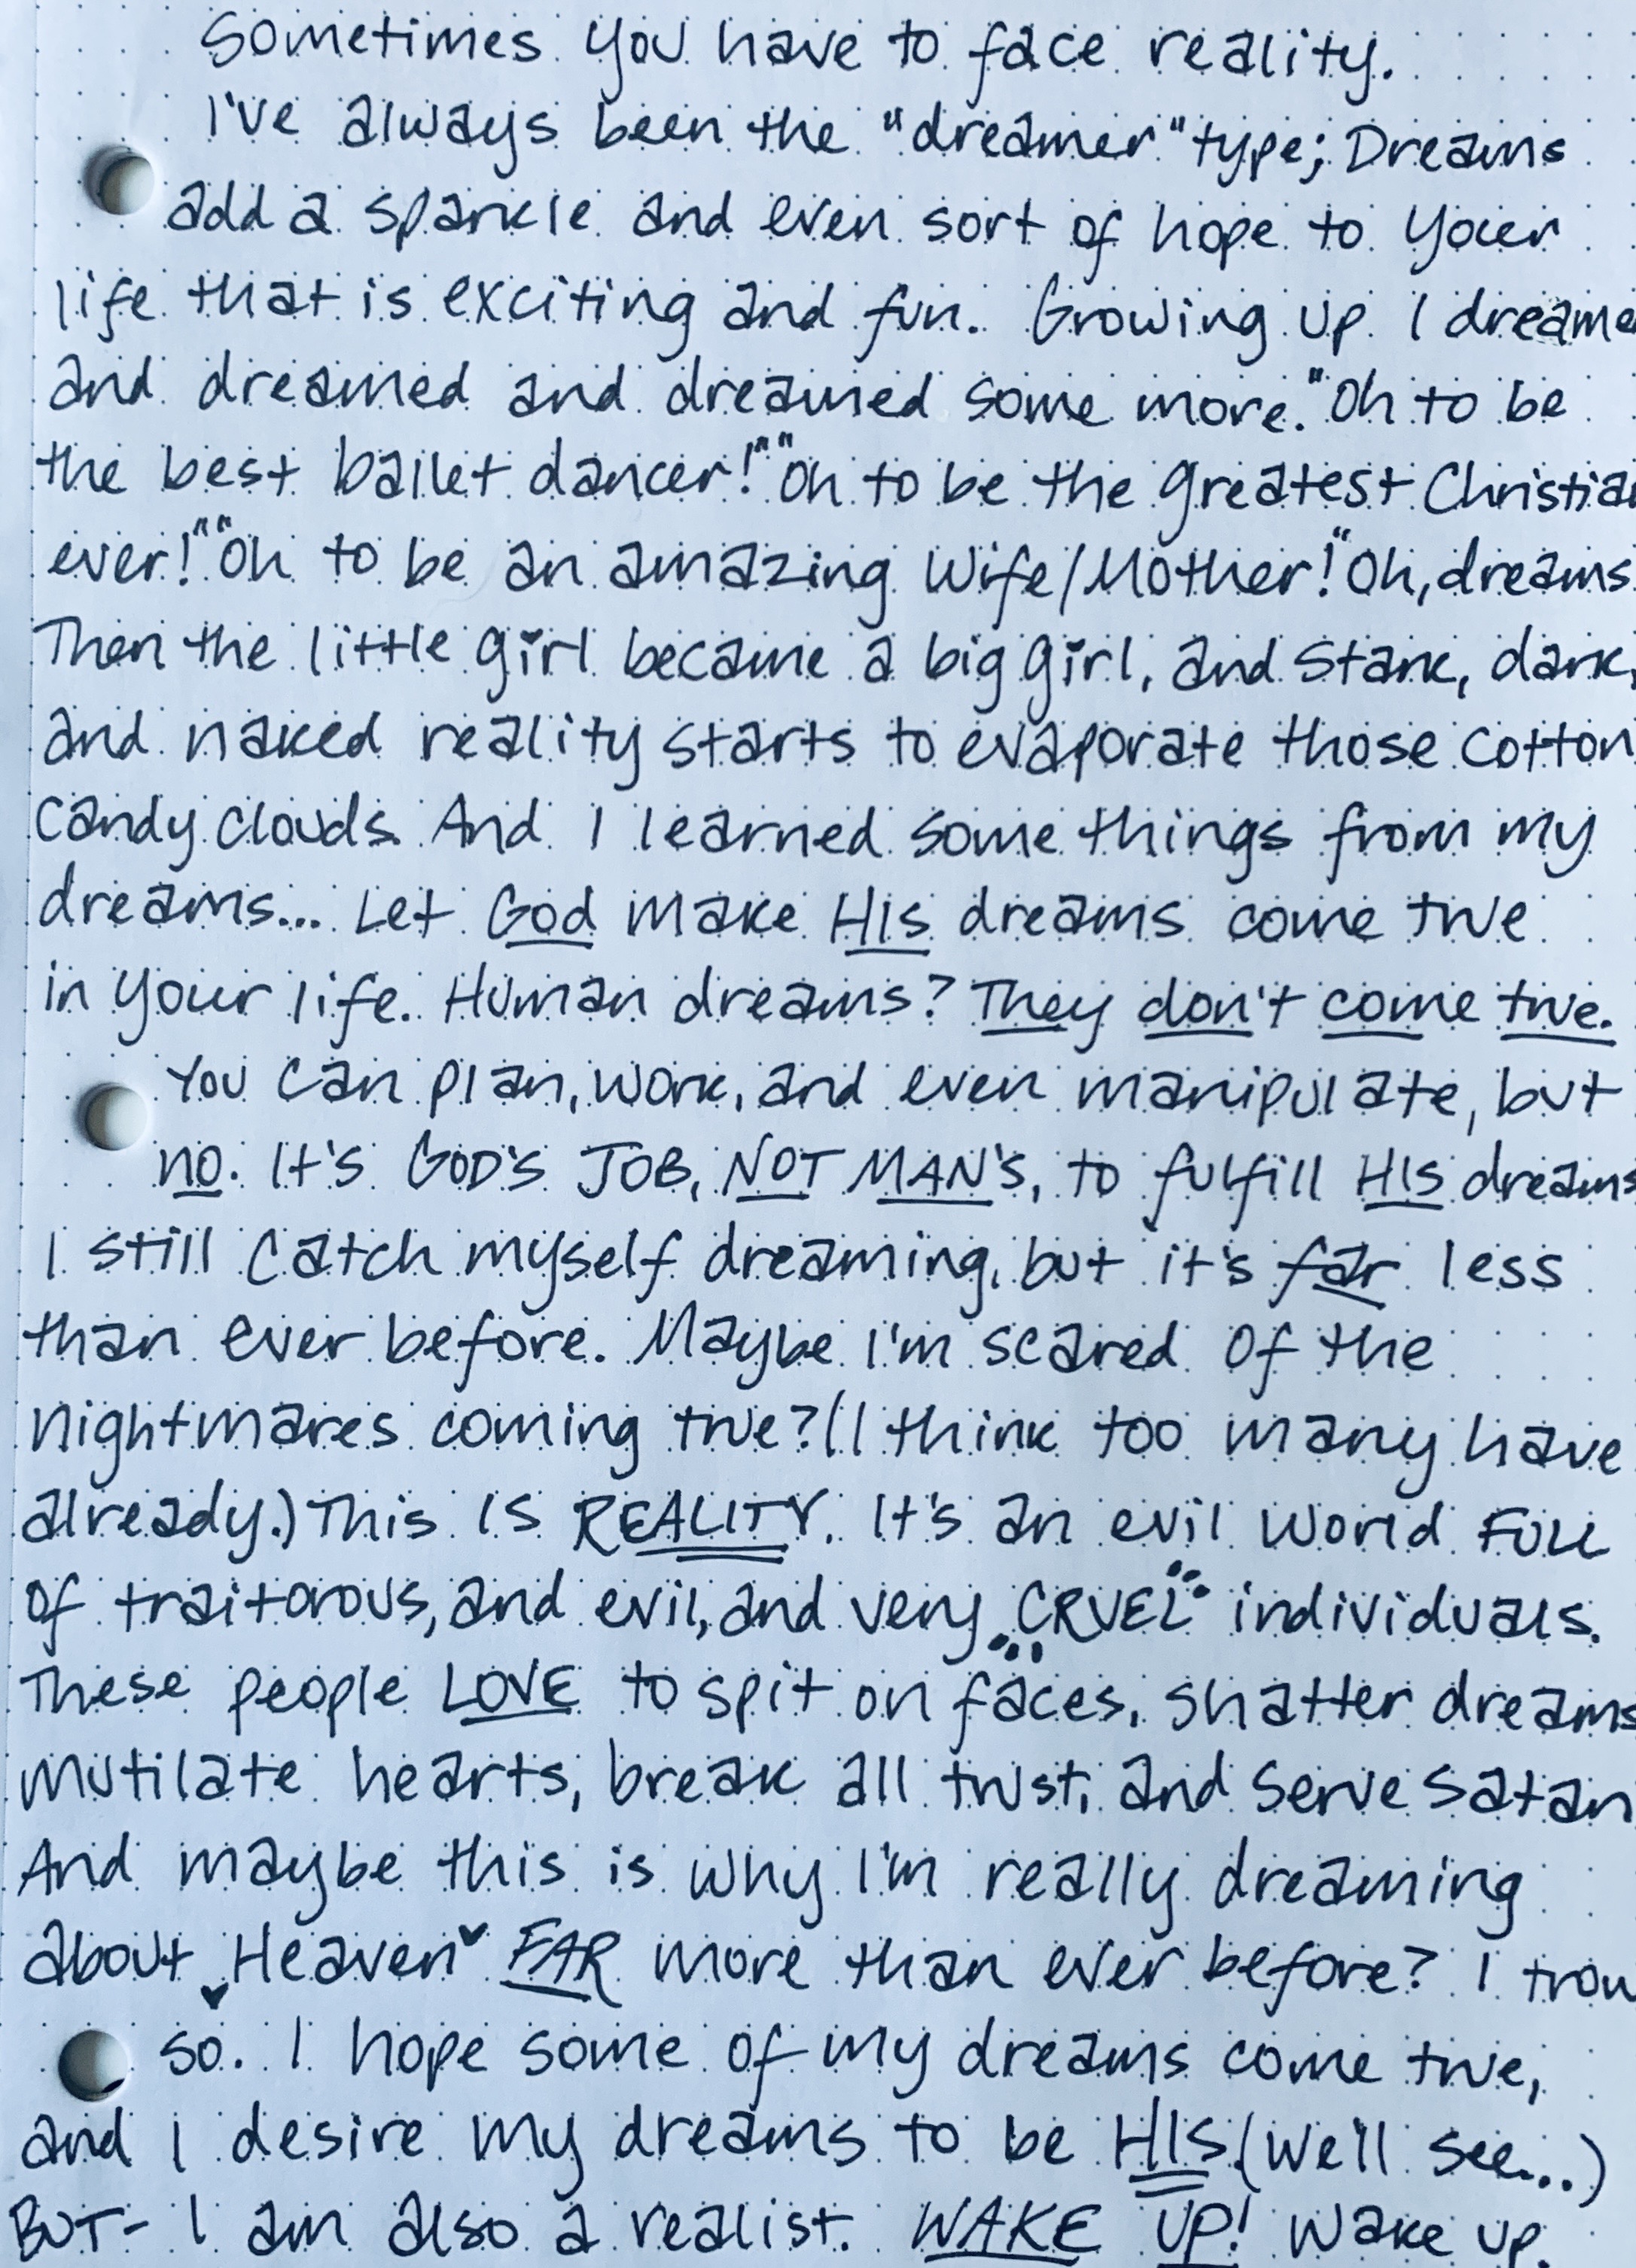 Sometimes you have to face reality.
I've always been the "dreamer" type; Dreams
add a sparkle and even sort of hope to your
life that is exciting and fun. Growing up I dreame
and dreamed and dreamed some more. "Oh to be
the best ballet dancer!" "Oh to be the greatest Christia
ever!" "Oh to be an amazing Wife/Mother!" Oh, dreams
Then the little girl became a big girl, and stark, dark,
and naked reality starts to evaporate those cotton
candy clouds. And I learned some things from my
dreams... Let God make HIS dreams come true
in your life. Human dreams? They don't come true.
You can plan, work, and even manipulate, but
no. It's GOD'S JOB, NOT MAN'S, to fulfill HIS dreams
I still catch myself dreaming, but it's far less
than ever before. Maybe I'm scared of the
nightmares coming true? (I think too many have
already.) This IS REALITY. It's an evil world FULL
of traitorous, and evil, and very CRUEL individuals.
These people LOVE to spit on faces, shatter dreams
mutilate hearts, break all trust, and serve Satan
And maybe this is why I'm really dreaming
about Heaven FAR more than ever before? I trow
so. I hope some of my dreams come true,
and I desire my dreams to be HIS. (We'll see...)
BUT- I am also a realist. WAKE UP! Wake up.